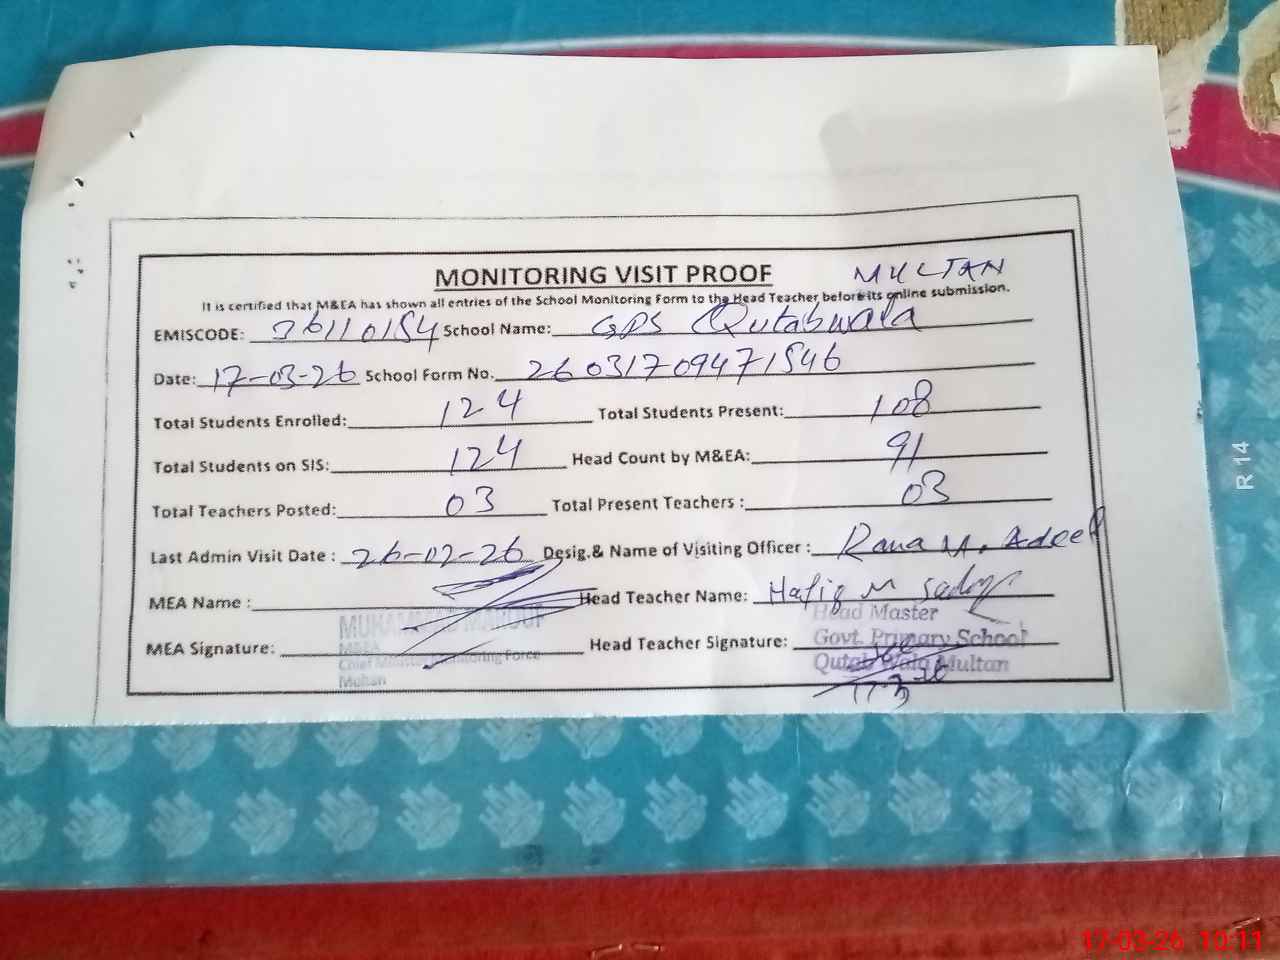 MONITORING VISIT PROOF MULTAN
It is certified that M&EA has shown all entries of the School Monitoring Form to the Head Teacher before its online submission.
EMISCODE: 36110154 School Name: GPS Qutabwala
Date: 17-03-26 School Form No. 26031709471546
Total Students Enrolled: 124 Total Students Present: 108
Total Students on SIS: 124 Head Count by M&EA: 91
Total Teachers Posted: 03 Total Present Teachers : 03
Last Admin Visit Date : 26-02-26 Desig.& Name of Visiting Officer : Rana M. Adeel
MEA Name : Head Teacher Name: Hafiz M
MUHAMMAD MAROUF Head Master
MEA Signature: Head Teacher Signature: Govt. Primary School
M&EA
Chief Minister Monitoring Force Qutab Wala Multan
Multan
R 14
17-03-26 10:11